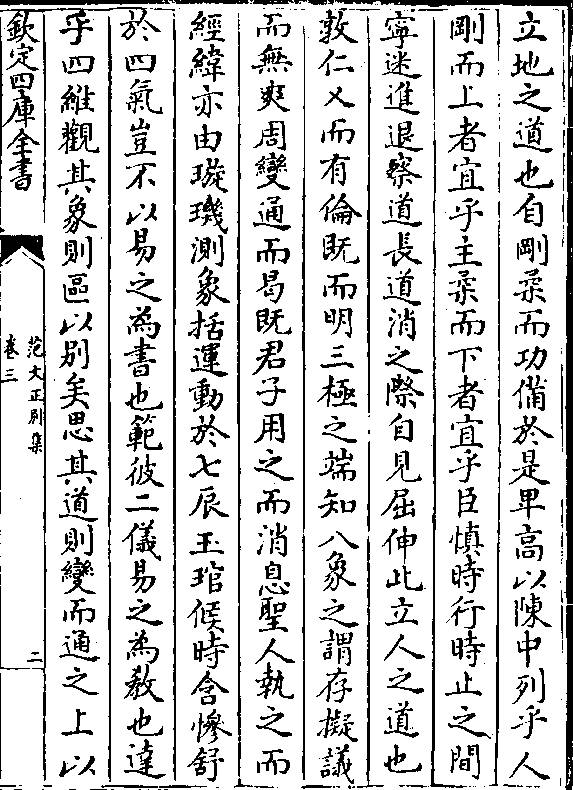 立地之道也自剛柔而功備於是卑高以陳中列乎人
剛而上者宜乎主柔而下者宜乎臣慎時行時止之間
寧迷進退察道長道消之際自見屈伸此立人之道也
敦仁义而有倫既而明三極之端知八象之謂存擬議
而無爽周變通而曷既君子用之而消息聖人執之而
經緯亦由璇璣測象括運動於七辰玉琯候時含慘舒
於四氣豈不以易之為書也範彼二儀易之為教也達
乎四維觀其象則區以別矣思其道則變而通之上以
欽定四庫全書
范文正別集
卷三
二